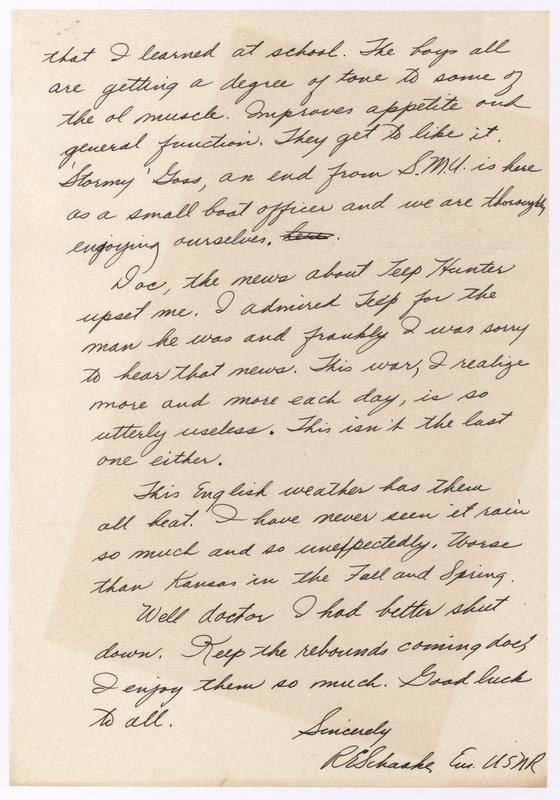 that I learned at school. The boys all
are getting a degree of tone to some of
the ol muscle. Improves appetite and
general function. They get to like it.
'Stormy' Goss, an end from S.M.U. is here
as a small boat officer and we are thoroughly
enjoying ourselves. here.
Doc, the news about Teep Hunter
upset me. I admired Teep for the
man he was and frankly I was sorry
to hear that news. This war, I realize
more and more each day, is so
utterly useless. This isn't the last
one either.
This English weather has them
all beat. I have never seen it rain
so much and so unexpectedly. Worse
than Kansas in the Fall and Spring.
Well doctor I had better shut
down. Keep the rebounds coming doc,
I enjoy them so much. Good luck
to all.
Sincerely
R E Schaake Ens. USNR